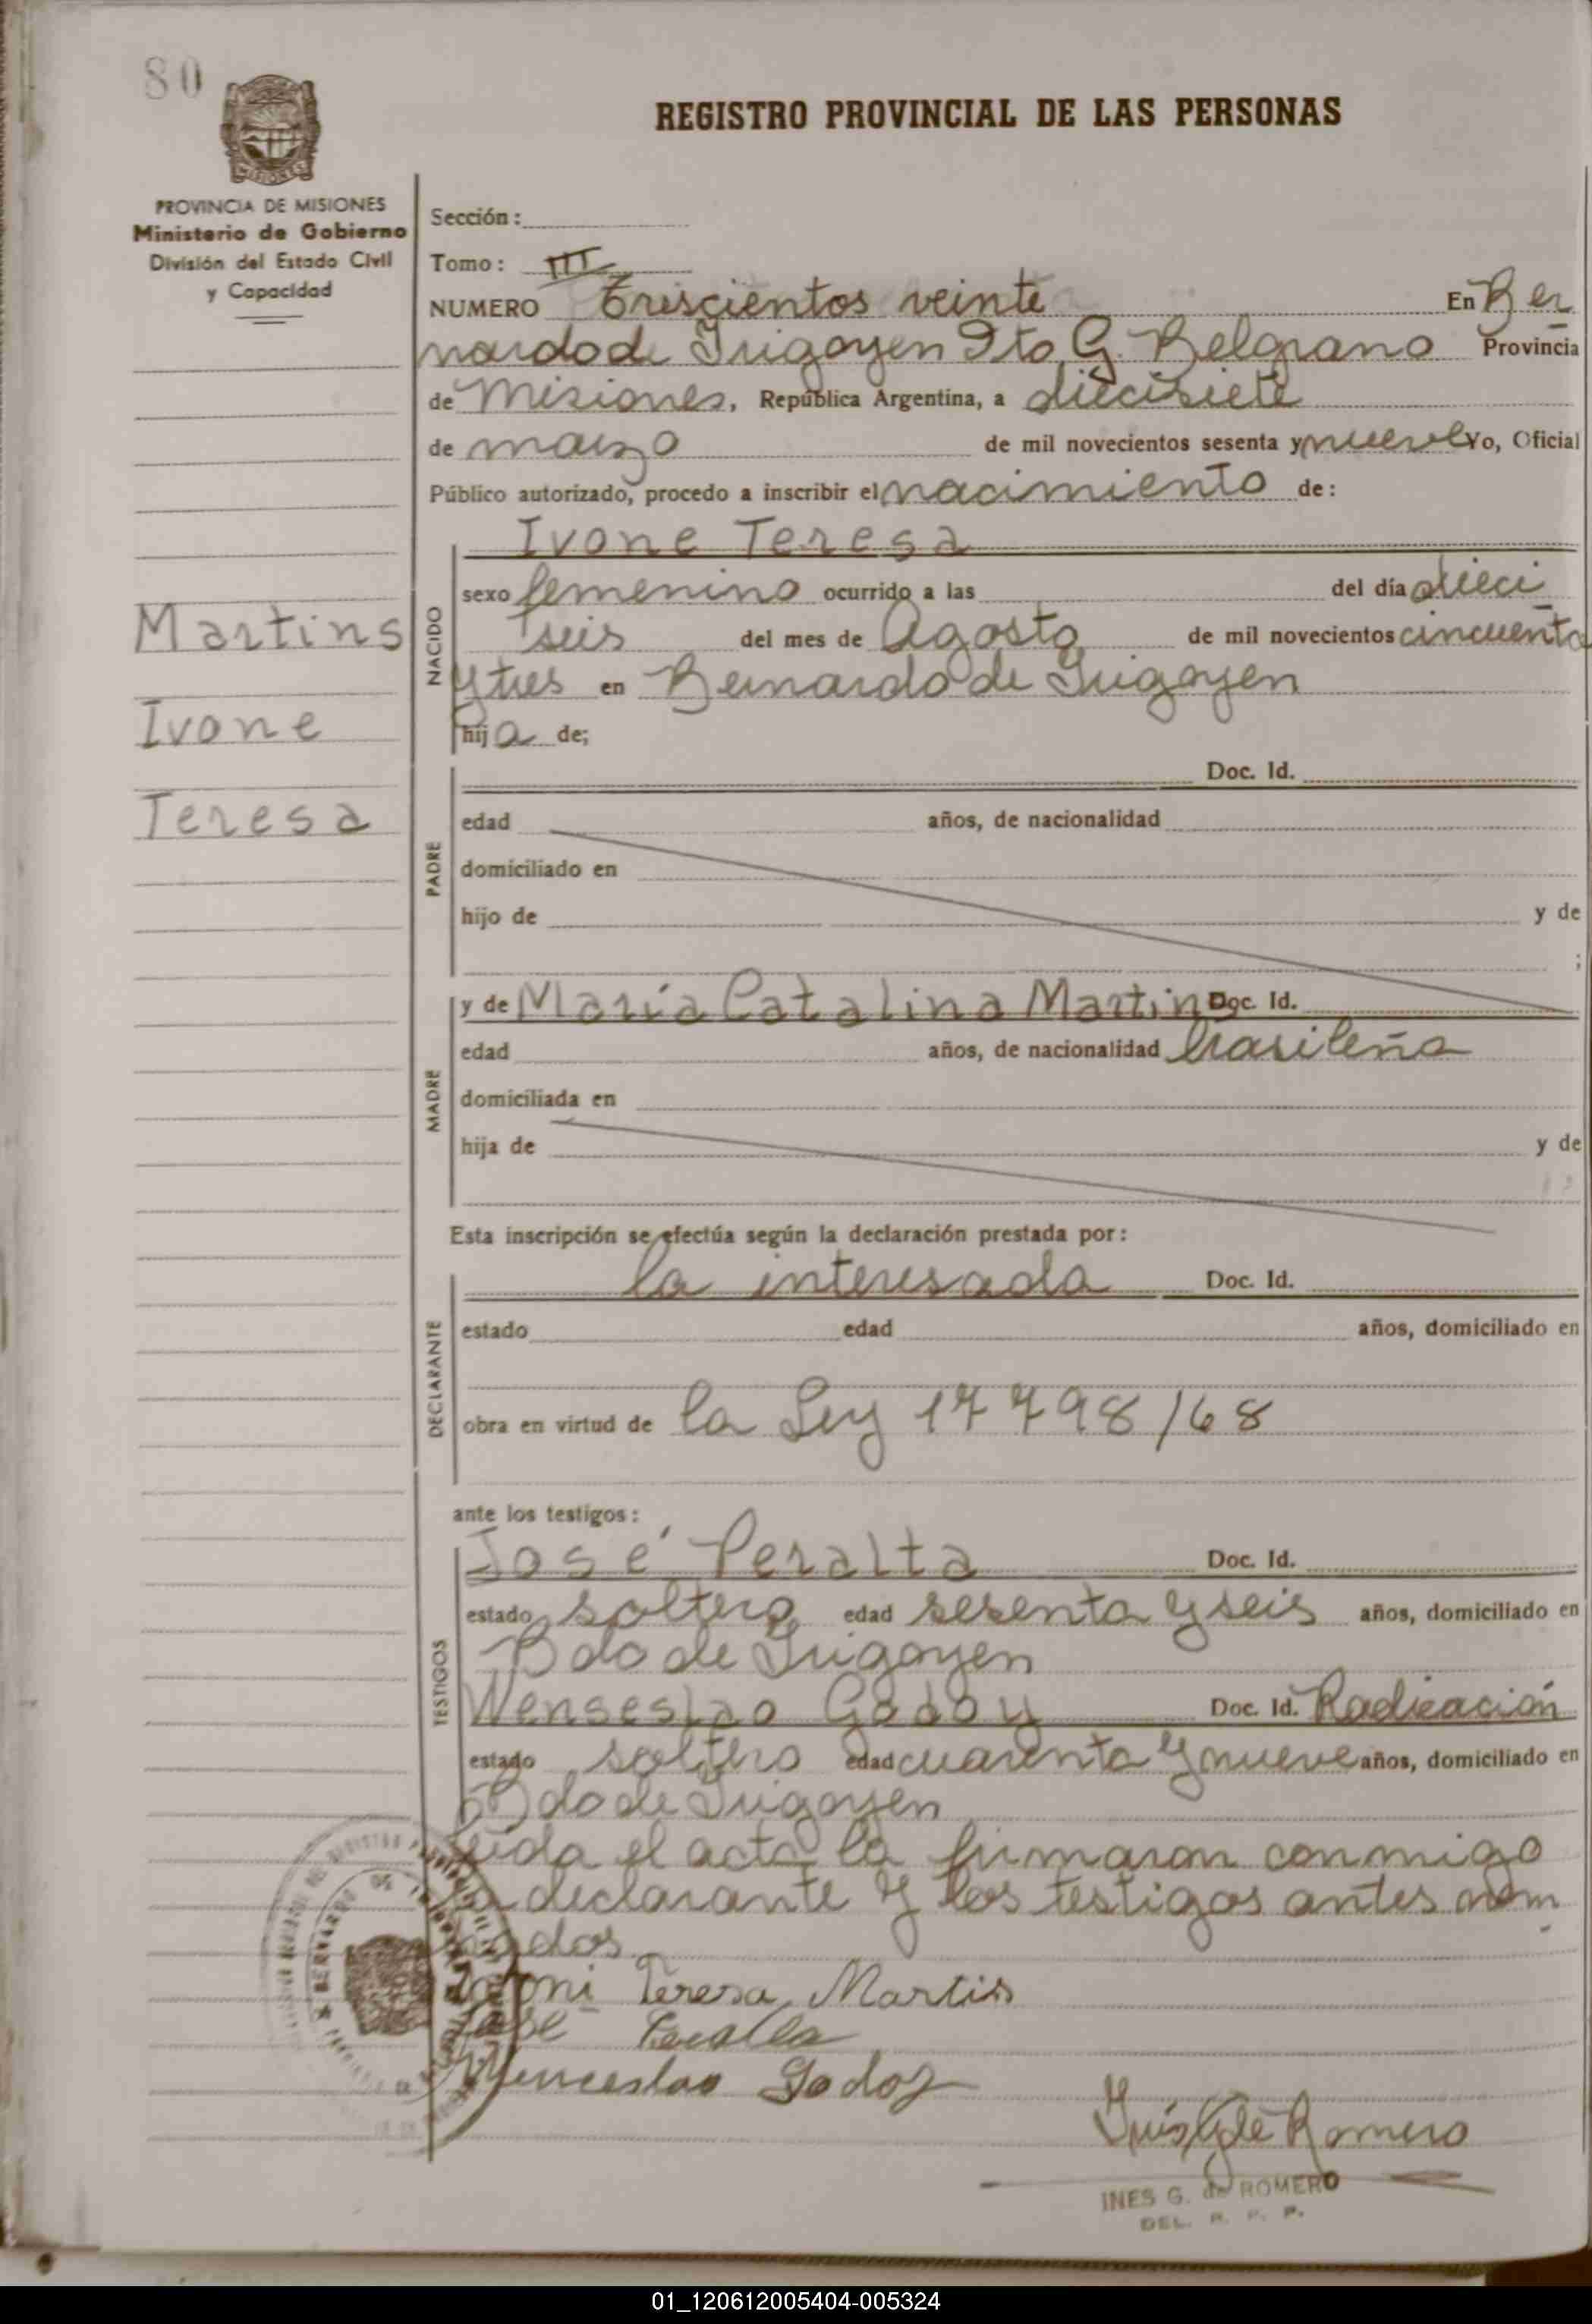 80
REGISTRO PROVINCIAL DE LAS PERSONAS
PROVINCIA DE MISIONES
Ministerio de Gobierno
División del Estado Civil
y Capacidad
Sección:
Tomo: III
NUMERO Trescientos veinte En Ber
nardo de Irigoyen Dto G. Belgrano Provincia
de Misiones, República Argentina, a diecisiete
de marzo de mil novecientos sesenta y nueve Yo, Oficial
Público autorizado, procedo a inscribir el nacimiento de:
Ivone Teresa
NACIDO
sexo femenino ocurrido a las del día dieci
seis del mes de Agosto de mil novecientos cincuenta
y tres en Bernardo de Irigoyen
hija de;
Martins
Ivone
Teresa
PADRE
Doc. Id.
edad años, de nacionalidad
domiciliado en
hijo de y de
;
MADRE
y de María Catalina Martins Doc. Id.
edad años, de nacionalidad brasileña
domiciliada en
hija de y de
Esta inscripción se efectúa según la declaración prestada por:
DECLARANTE
la interesada Doc. Id.
estado edad años, domiciliado en
obra en virtud de la Ley 17798/68
ante los testigos:
TESTIGOS
José Peralta Doc. Id.
estado soltero edad sesenta y seis años, domiciliado en
Bdo de Irigoyen
Wenseslao Godoy Doc. Id. Radicación
estado soltero edad cuarenta y nueve años, domiciliado en
Bdo de Irigoyen
Leida el acta la firmaron conmigo
la declarante y los testigos antes nom
brados
Teresa Martis
José Peralta
Wenceslao Godoy
Inés G de Romero
INES G. de ROMERO
DEL. R. P. P.
01_120612005404-005324